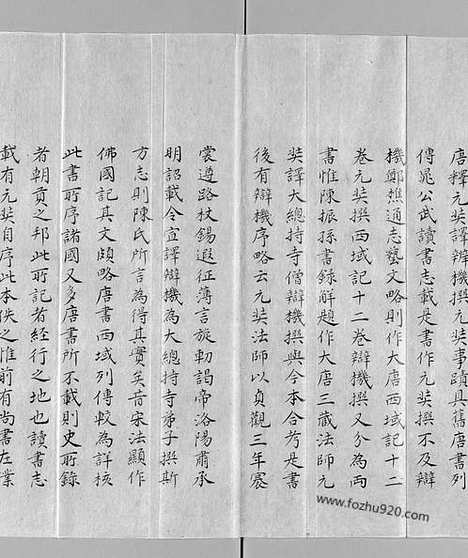 唐釋元奘譯辯機撰元奘事蹟具舊唐書列
傳晁公武讀書志載是書作元奘撰不及辯
機鄭樵通志藝文略則作大唐西域記十二
卷元奘撰西域記十二卷辯機撰又分為兩
書惟陳振孫書錄解題作大唐三藏法師元
奘譯大總持寺僧辯機撰與今本合考是書
後有辯機序略云元奘法師以貞觀三年褰
裳遵路杖錫遐征薄言旋軔謁帝洛陽肅承
明詔載令宣譯辯機為大總持寺弟子撰斯
方志則陳氏所言為得其實矣昔宋法顯作
佛國記其文頗略唐書西域列傳較為詳核
此書所序諸國又多唐書所不載則史所錄
者朝貢之邦此所記者經行之地也讀書志
載有元奘自序此本佚之惟前有尚書左業
www.fozhu920.com